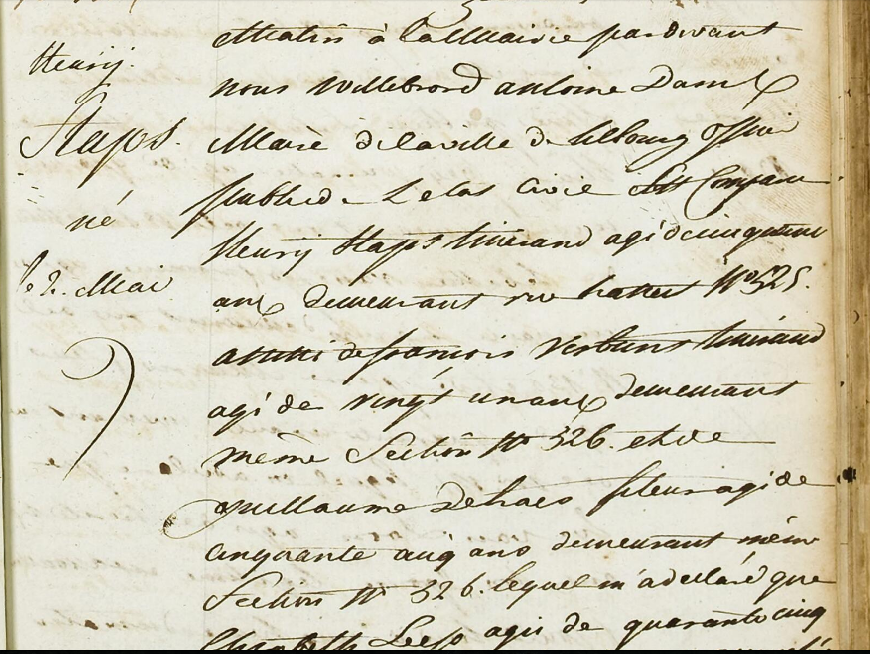 Henrij
Staps.
né
le 2. Mai
du Matin à la Mairie pardevant
nous Willebrord antoine Dams
Maire de la ville de tilbourg officier
public de L'etat Civil Est Comparu
Henrij Staps tisserand agé de cinquante
ans demeurant rue N° 325.
assisté de francois Verbunt tisserand
agé de vingt un ans demeurant
même Section N° 326. et de
guillaume Dehaes fileur agé de
cinquante cinq ans demeurant même
Section N° 326. lequel m'a declaré que
Elisabeth agée de quarante cinq